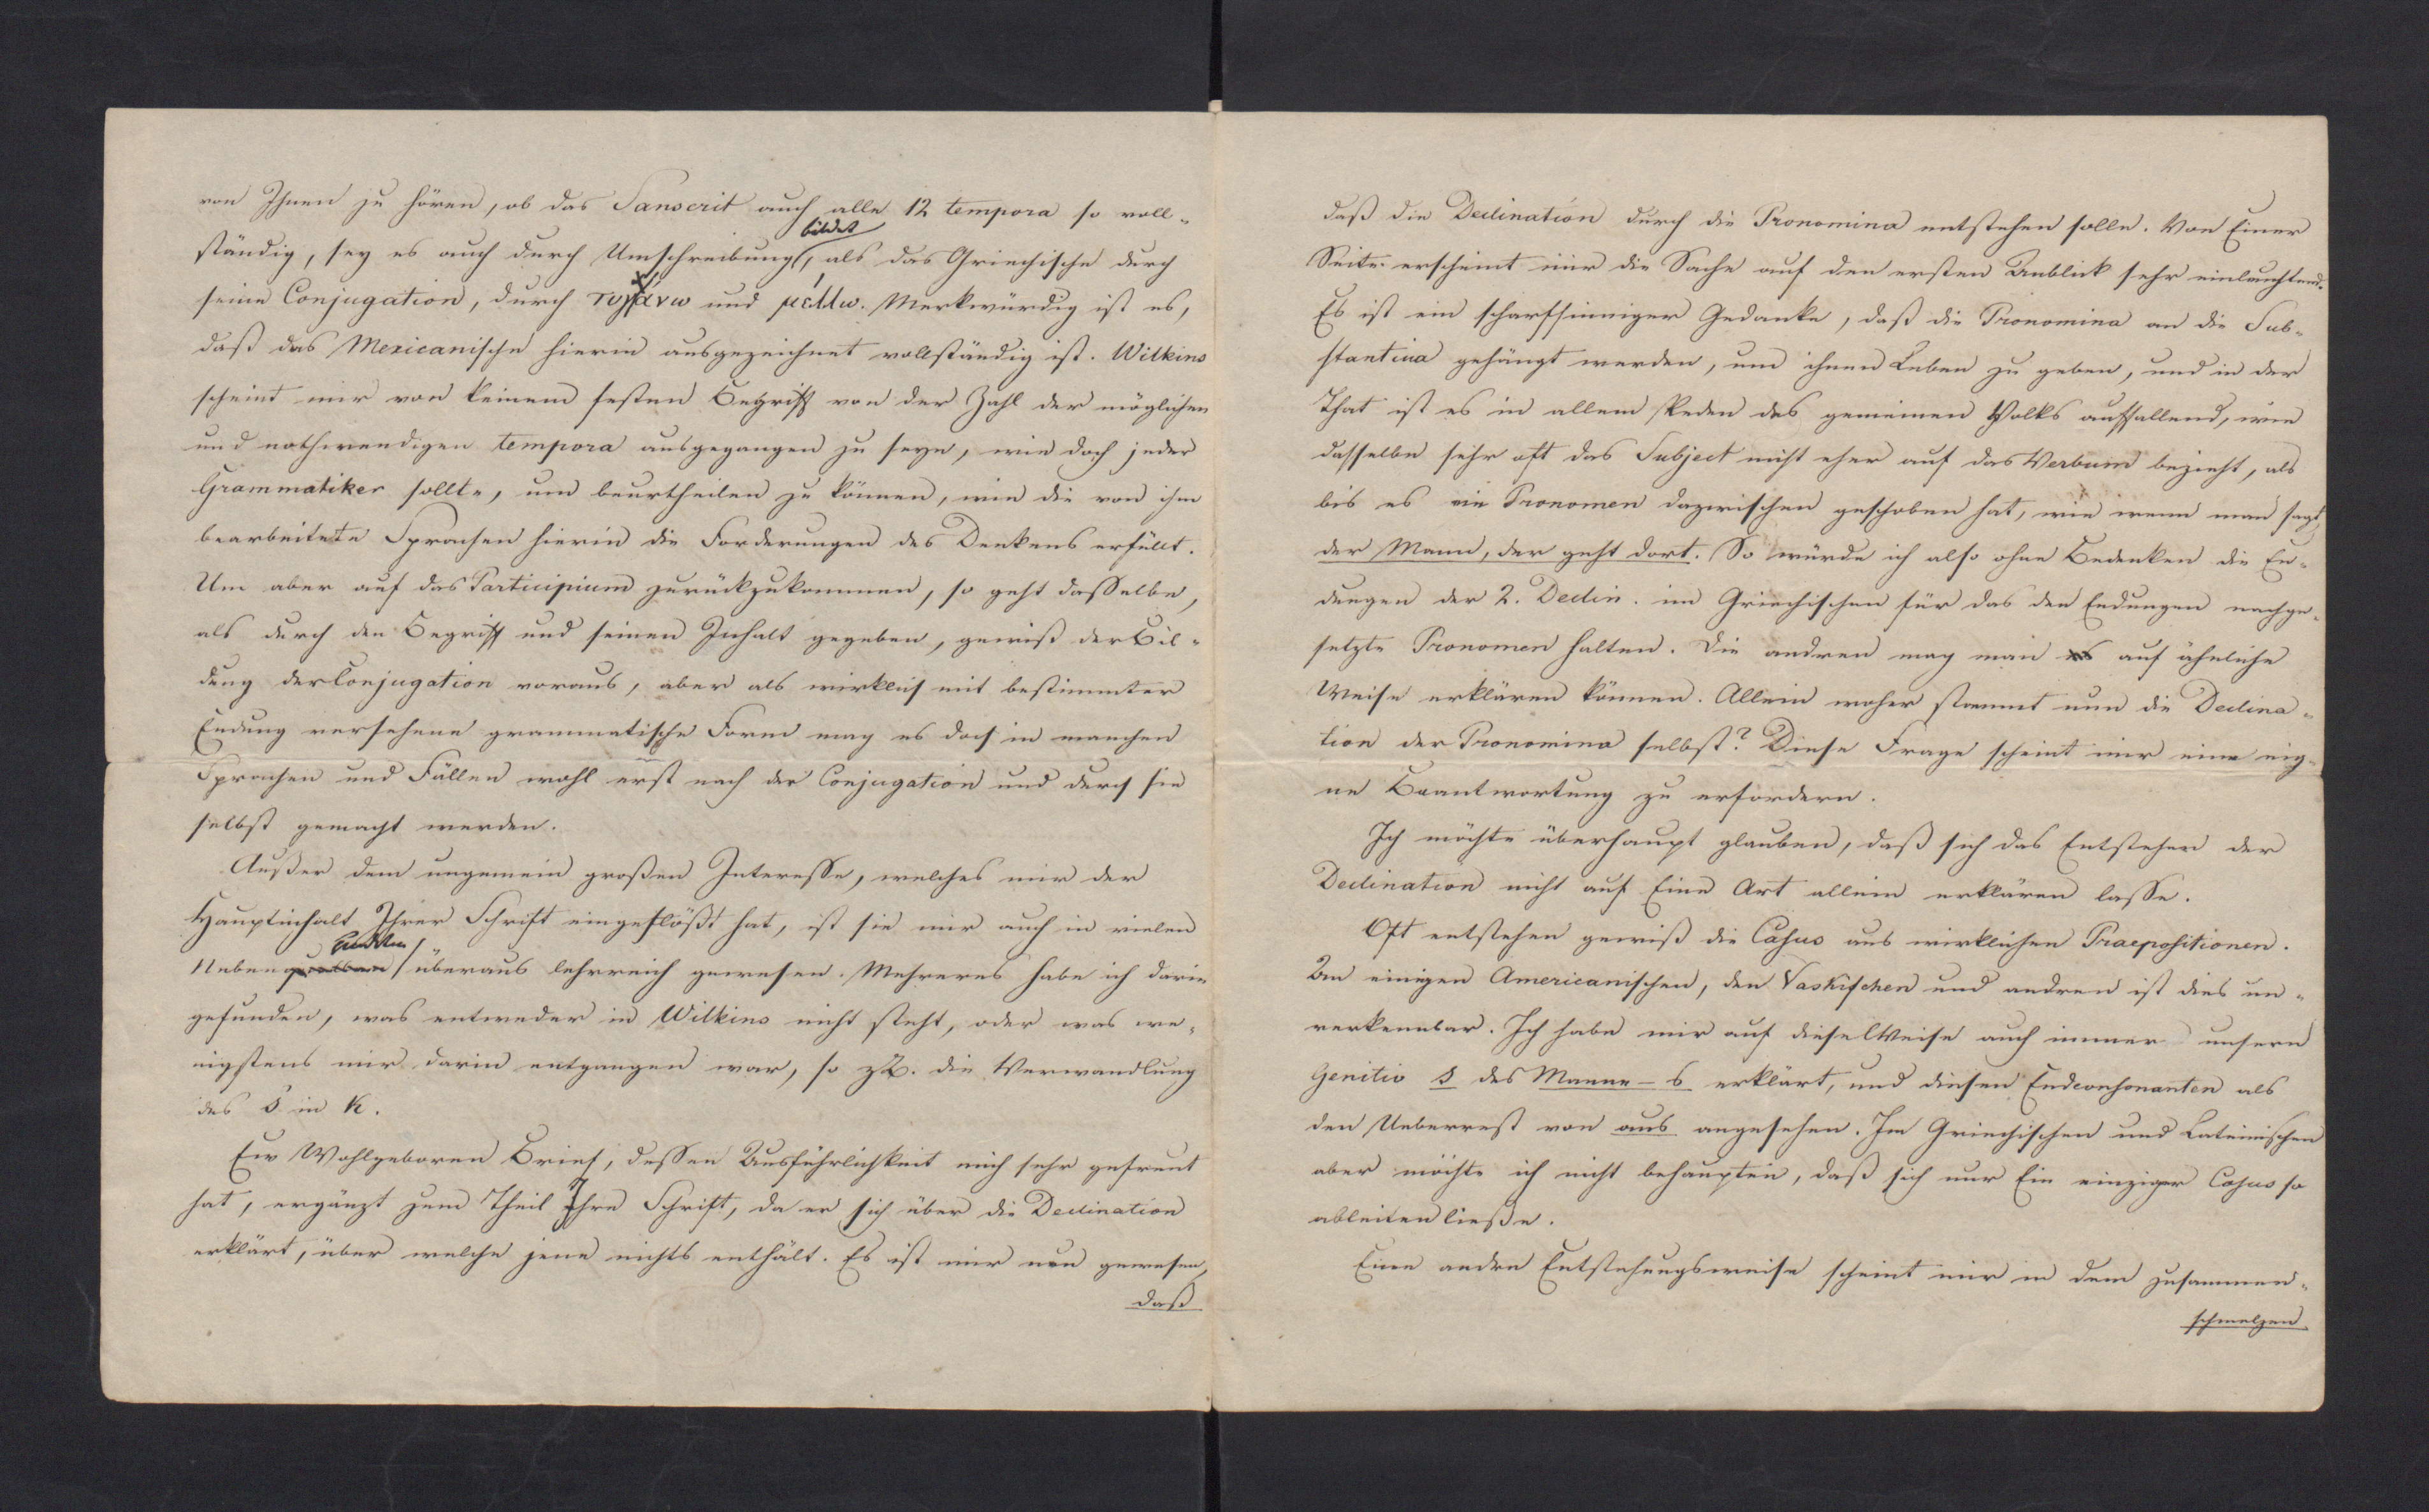 von Ihnen zu hören, ob das Sanscrit auch alle 12 tempora so voll-
bildet
ständig, sey es auch durch Umschreibung, als das Griechische durch
seine Conjugation, durch τυγχάνω und μέλλω. Merkwürdig ist es,
daß das Mexicanische hierin ausgezeichnet vollständig ist. Wilkins
scheint mir von keinem festen Begriff von der Zahl der möglichen
und nothwendigen tempora ausgegangen zu seyn, wie doch jeder
Grammatiker sollte, um beurtheilen zu können, wie die von ihm
bearbeitete Sprachen hierin die Forderungen des Denkens erfüllt.
Um aber auf das Participium zurückzukommen, so geht dasselbe,
als durch den Begriff und seinen Inhalt gegeben, gewiß der Bil-
dung der Conjugation voraus, aber als wirklich mit bestimmter
Endung versehene grammatische Form mag es doch in manchen
Sprachen und Fällen wohl erst nach der Conjugation und durch sie
selbst gemacht werden.
Außer dem ungemein großen Interesse, welches mir der
Hauptinhalt Ihrer Schrift eingeflößt hat, ist sie mir auch in vielen
punkten
Neben überaus lehrreich gewesen. Mehreres habe ich darin
gefunden, was entweder in Wilkins nicht steht, oder was we-
nigstens mir darin entgangen war, so zB. die Verwandlung
des s in k.
Ew Wohlgeboren Brief, dessen Ausführlichkeit mich sehr gefreut
hat, ergänzt zum Theil Ihre Schrift, da er sich über die Declination
erklärt, über welche jene nichts enthält. Es ist mir neu gewesen,
daß
daß die Declination durch die Pronomina entstehen solle. Von Einer
Seite erscheint mir die Sache auf den ersten Anblick sehr einleuchtend.
Es ist ein scharfsinniger Gedanke, daß die Pronomina an die Sub-
stantiva gehängt werden, um ihnen Leben zu geben, und in der
That ist es in allem Reden des gemeinen Volks auffallend, wie
dasselbe sehr oft das Subject nicht eher auf das Verbum bezieht, als
bis es ein Pronomen dazwischen geschoben hat, wie wenn man sagt,
der Mann, der geht dort. So würde ich also ohne Bedenken die En-
dungen der 2. Declin. im Griechischen für das den Endungen nachge-
setzte Pronomen halten. Die andren mag man es auf ähnliche
Weise erklären können. Allein woher stammt nun die Declina-
tion der Pronomina selbst? Diese Frage scheint mir eine eig-
ne Beantwortung zu erfordern.
Ich möchte überhaupt glauben, daß sich das Entstehen der
Declination nicht auf Eine Art allein erklären lasse.
Oft entstehen gewiß die Casus aus wirklichen Praepositionen.
An einigen Americanischen, den Vaskischen und andren ist dies un-
verkennbar. Ich habe mir auf diese Weise auch immer unsern
Genitiv s des Manne-s erklärt, und diesen Endconsonanten als
den Ueberrest von aus angesehen. Im Griechischen und Lateinischen
aber möchte ich nicht behaupten, daß sich nur Ein einziger Casus so
ableiten ließe.
Eine andre Entstehungsweise scheint mir in dem zusammen-
schmelzen